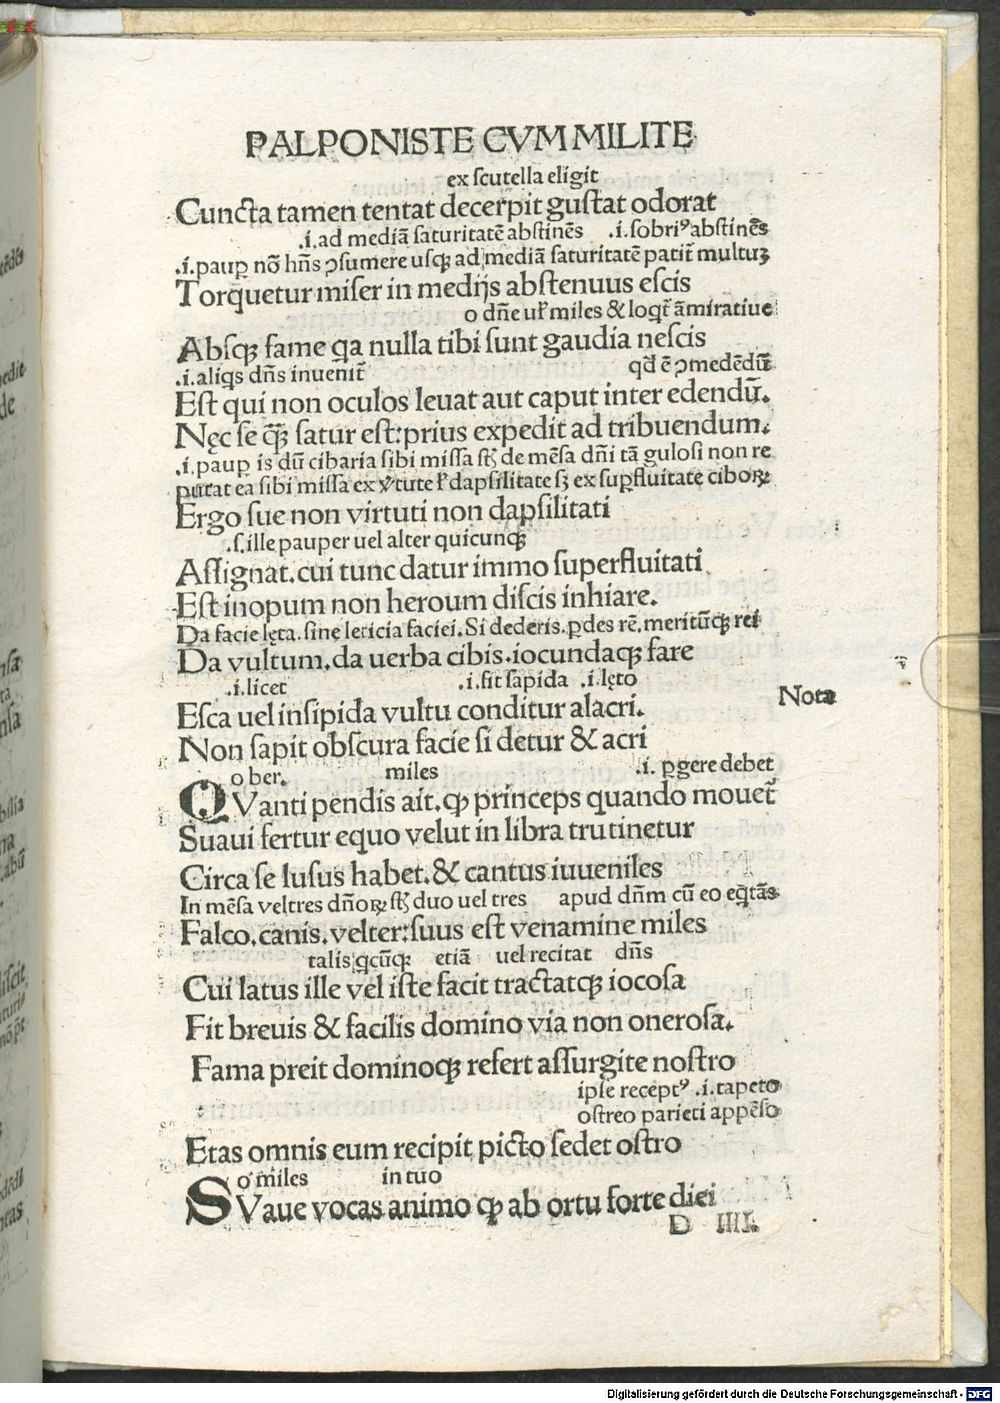 PALPONISTE CVM MILITE
ex scutella eligit
Cuncta tamen tentat decerpit gustat odorat
.i. ad mediã saturitatẽ abstinẽs .i. sobriꝰ abstinẽs
.i. paup nõ hñs ꝯsumere usqꝫ ad mediã saturitatẽ patit᷑ multuꝫ
Torquetur miser in medijs abstenuus escis
o dñe ur̃ miles & loqt᷑ ãmiratiue
Absqꝫ fame qa nulla tibi sunt gaudia nescis
.i. aliqs dñs inuenit᷑ qd̃ ẽ ꝯmedẽdũ
Est qui non oculos leuat aut caput inter edendũ.
Nęc se qꝫ̃ satur est: prius expedit ad tribuendum.
.i. paup is dũ cibaria sibi missa stꝫ de mẽsa dñi tã gulosi non re
putat ea sibi missa ex v̓tute ł dapsilitate sꝫ ex supfluitate ciboꝝ
Ergo sue non virtuti non dapsilitati
.s. ille pauper uel alter quicunqꝫ
Assignat. cui tunc datur immo superfluitati
Est inopum non heroum discis inhiare.
Da facie lęta. sine leticia faciei. Si dederis. pdes rẽ. meritũqꝫ rei
Da vultum. da uerba cibis. iocundaqꝫ fare
.i. licet .i. sit sapida .i. lęto
Nota
Esca uel insipida vultu conditur alacri.
Non sapit obscura facie si detur & acri
o ber. miles .i. pgere debet
QVanti pendis ait. ꝙ princeps quando mouet᷑
Suaui fertur equo velut in libra trutinetur
Circa se lusus habet. & cantus iuueniles
In mẽsa veltres dñoꝝ stꝫ duo uel tres apud dñm cũ eo eqtãs
Falco. canis. velter: suus est venamine miles
talis qcũqꝫ etiã uel recitat dñs
Cui latus ille vel iste facit tractatqꝫ iocosa
Fit breuis & facilis domino via non onerosa.
Fama preit dominoqꝫ refert assurgite nostro
ipse receptꝰ .i. tapeto
ostreo parieti appẽso
Etas omnis eum recipit picto sedet ostro
o miles in tuo
SVaue vocas animo ꝙ ab ortu forte diei
D IIII.
Digitalisierung gefördert durch die Deutsche Forschungsgemeinschaft - DFG